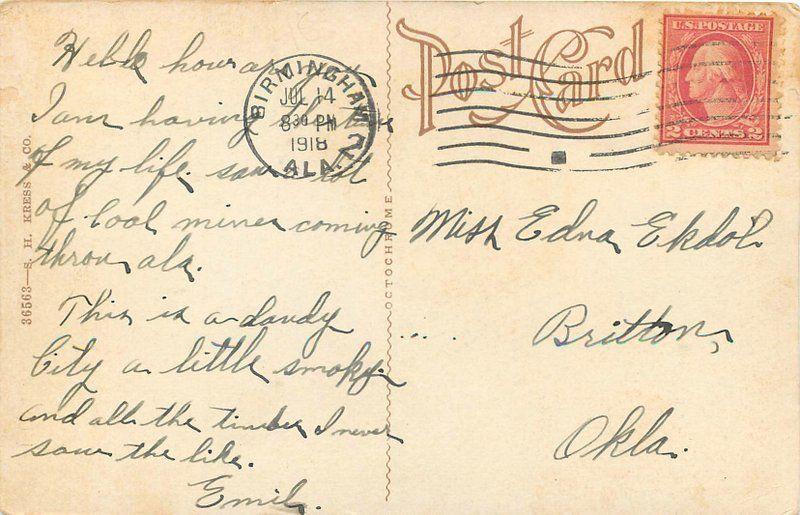 Hello how are
I am having
of my life. saw a lot
of Coal mines coming
throu ala.
This is a dandy
City a little smoky.
and all the timber I never
saw the like.
Emil.
36563—S. H. KRESS & CO.
OCTOCHROME
Post Card
BIRMINGHAM
JUL 14
8 30 PM
1918
ALA.
U.S. POSTAGE
2 CENTS 2
Miss Edna Ekdol
Britton,
Okla.